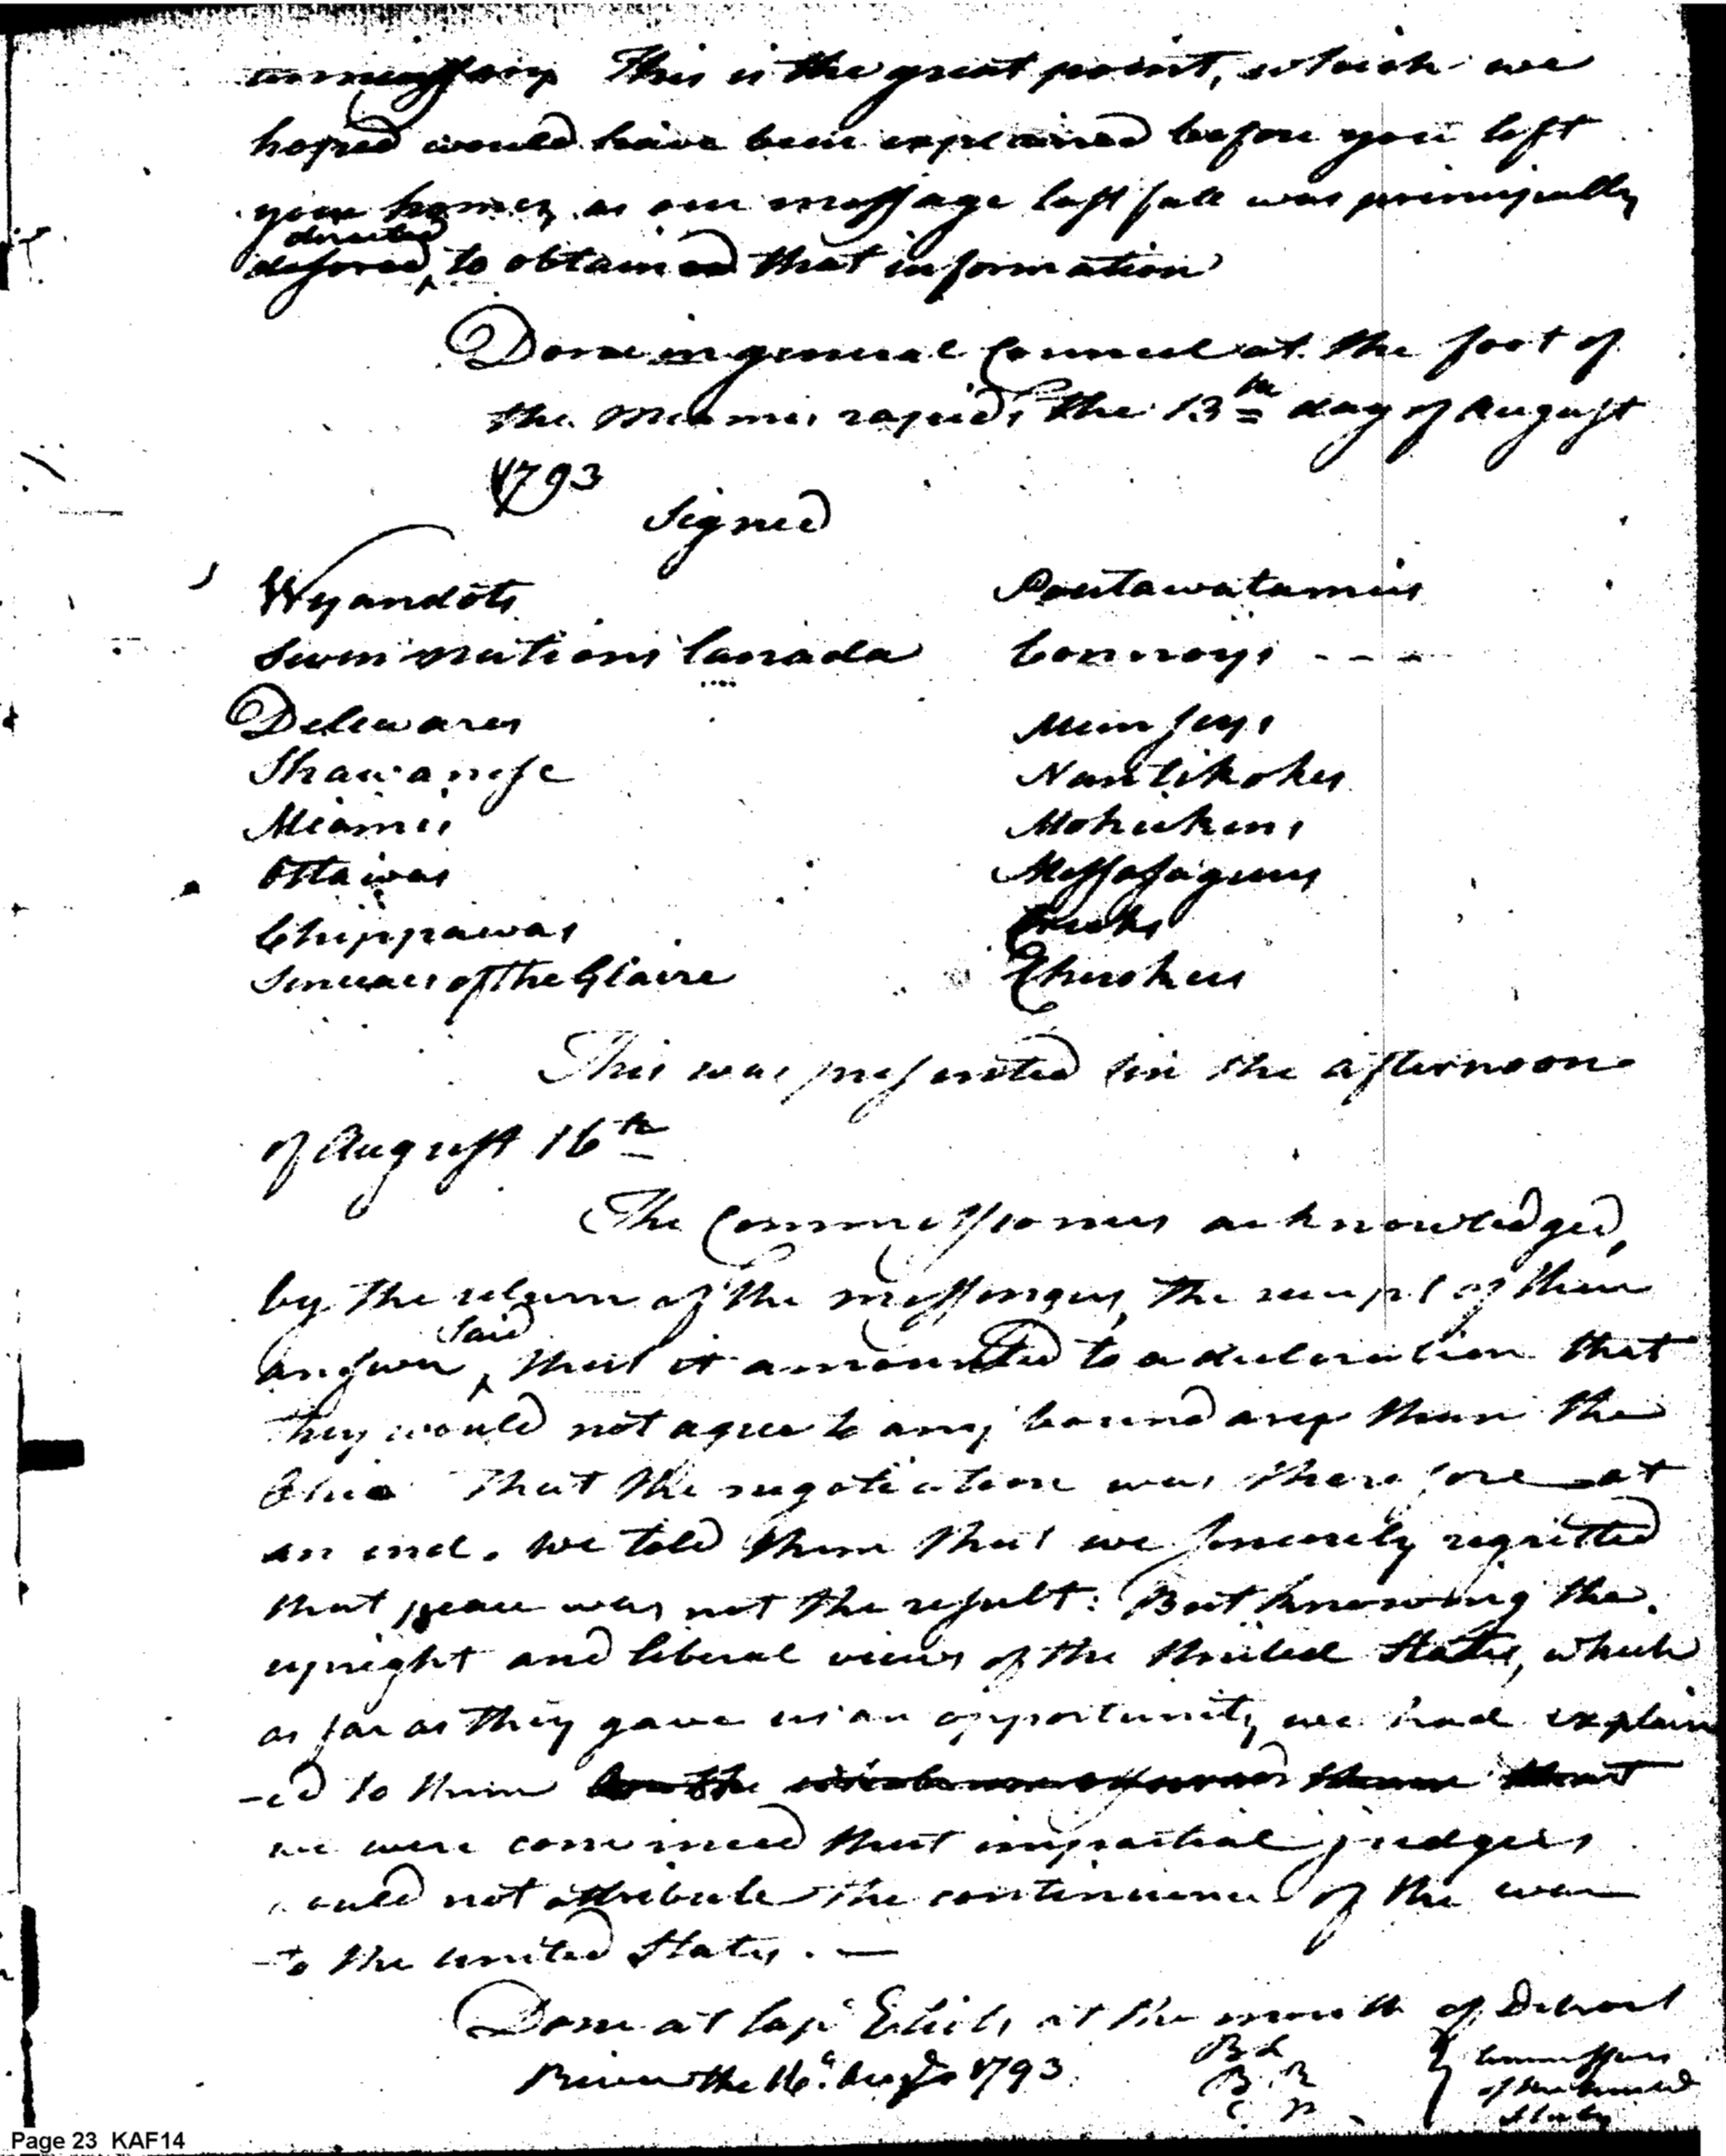 unnecessary This is the great point, which we
hoped would have been explained before you left
your homes, as our message last fall was principally
directed
to obtain that information
Done in general Council at the foot of
the Miamis rapids, the 13th day of August
1793
Signed
Wyandots Poutawatamies
Seven nations Canada Connoys - - -
Delewares Munseys
Shawanese Nantikokes
Miamis Mohickens
Ottawas Messasagues
Chippawas Creeks
Senecas of the Glaire Cherokees
This was presented in the afternoon
of August 16th
The Commissioners acknowledged,
by the return of the messengers, the receipt of their
said
answer, that it amounted to a declaration that
they would not agree to any boundary than the
Ohio That the negotiation was therefore at
an end. we told them that we sincerely regretted
that peace was not the result: But knowing the
upright and liberal views of the United States, which
as far as they gave us an opportunity we had explain
-ed to them
we were convinced that impartial judges
would not attribute the continuence of the war
to the United States. —
Done at Cap Elliots at the mouth of Detroit
River the 16th Augt 1793. B L Commissrs
B. R of the United
States
Page 23 KAF14